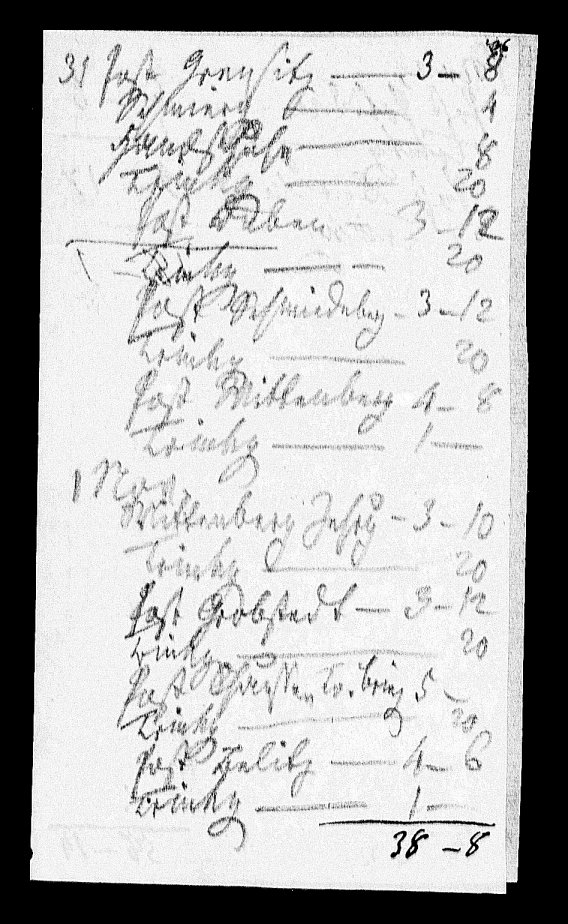 31 Post Grensitz — 3 — 8
Schmiern — 4
Handschuhe — 8
Trinkg — 20
Post Düben — 3 — 12
Trinkg — 20
Post Schmiedebg — 3 — 12
Trinkg — 20
Post Wittenberg 4 — 8
Trinkg — 1 —
1 Nov.
Wittenberg Zehrg — 3 — 10
Trinkg — 20
Post Grobstedt — 3 — 12
Trinkg — 20
Post Tr. briez 5 —
Trinkg — 20
Post Belitz — 4 — 6
Trinkg — 1 —
38 — 8